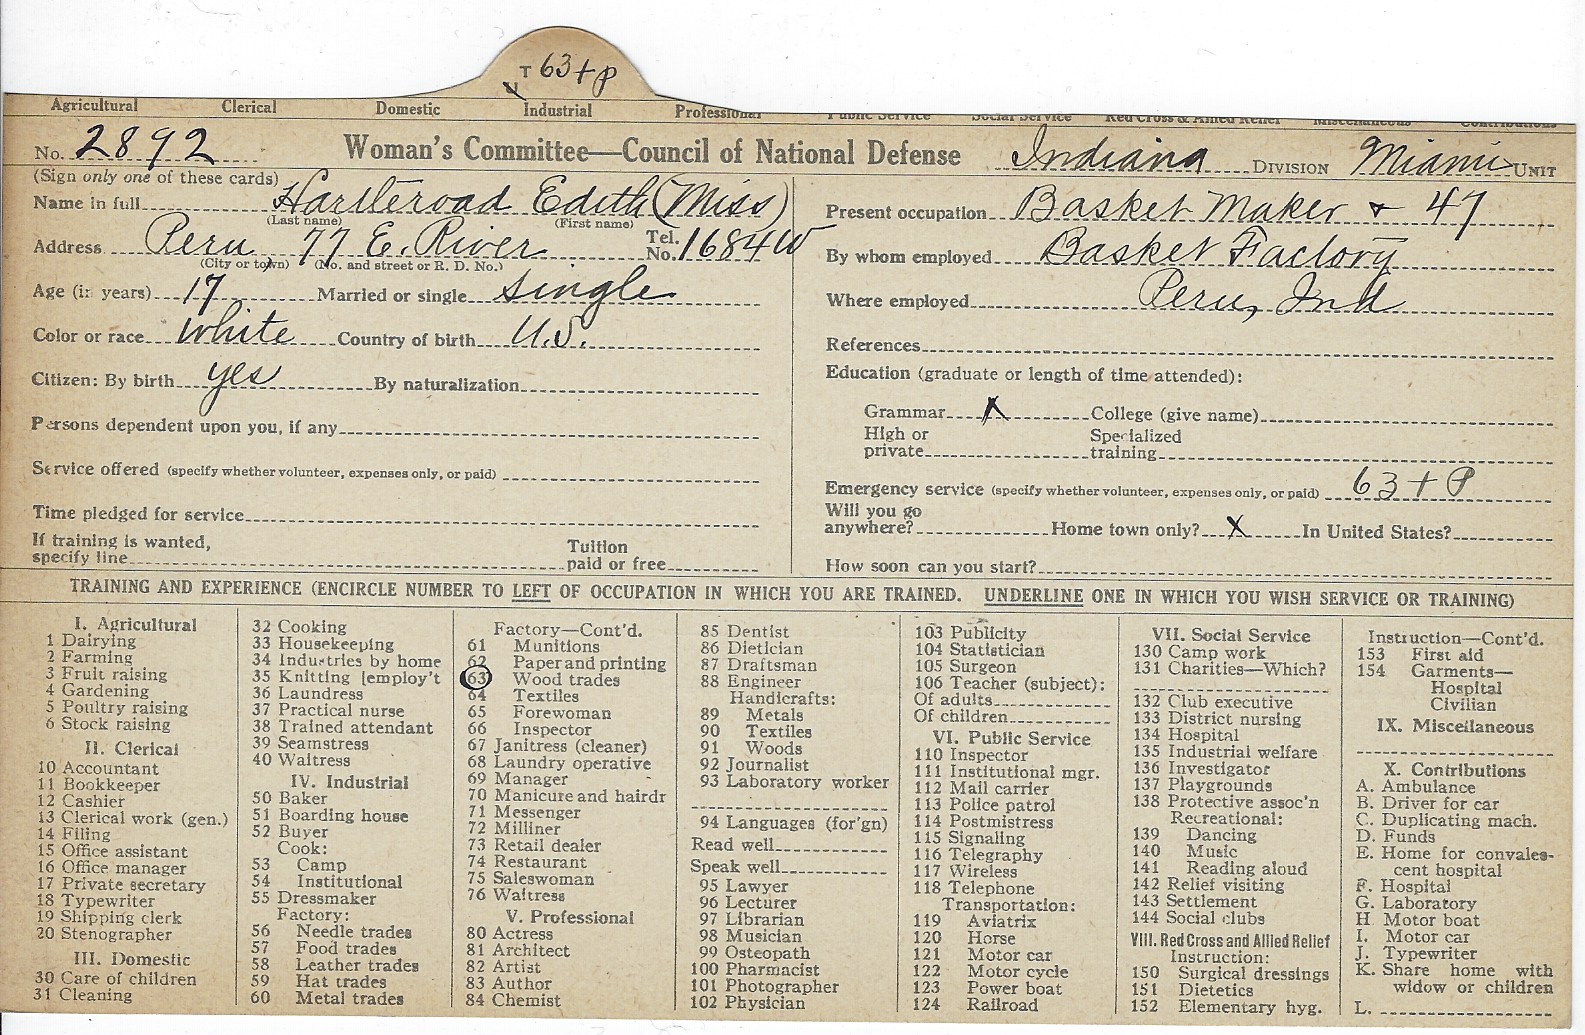 T 63 + P
Agricultural Clerical Domestic Industrial Professional Public Service Social Service Red Cross & Allied Relief Miscellaneous Contributions
No. 2892 Woman's Committee—Council of National Defense Indiana DIVISION Miami UNIT
(Sign only one of these cards)
Name in full Hartleroad Edith (Miss)
(Last name) (First name)
Address Peru 77 E. River Tel. No. 1684W
(City or town) (No. and street or R. D. No.)
Age (in years) 17 Married or single single
Color or race white Country of birth U.S.
Citizen: By birth yes By naturalization
Persons dependent upon you, if any
Service offered (specify whether volunteer, expenses only, or paid)
Time pledged for service
If training is wanted,
specify line
Tuition
paid or free
Present occupation Basket Maker + 47
By whom employed Basket Factory
Where employed Peru, Ind
References
Education (graduate or length of time attended):
Grammar X College (give name)
High or
private
Specialized
training
Emergency service (specify whether volunteer, expenses only, or paid) 63 + P
Will you go
anywhere? Home town only? X In United States?
How soon can you start?
TRAINING AND EXPERIENCE (ENCIRCLE NUMBER TO LEFT OF OCCUPATION IN WHICH YOU ARE TRAINED. UNDERLINE ONE IN WHICH YOU WISH SERVICE OR TRAINING)
I. Agricultural
1 Dairying
2 Farming
3 Fruit raising
4 Gardening
5 Poultry raising
6 Stock raising
II. Clerical
10 Accountant
11 Bookkeeper
12 Cashier
13 Clerical work (gen.)
14 Filing
15 Office assistant
16 Office manager
17 Private secretary
18 Typewriter
19 Shipping clerk
20 Stenographer
III. Domestic
30 Care of children
31 Cleaning
32 Cooking
33 Housekeeping
34 Industries by home
35 Knitting [employ't
36 Laundress
37 Practical nurse
38 Trained attendant
39 Seamstress
40 Waitress
IV. Industrial
50 Baker
51 Boarding house
52 Buyer
Cook:
53 Camp
54 Institutional
55 Dressmaker
Factory:
56 Needle trades
57 Food trades
58 Leather trades
59 Hat trades
60 Metal trades
Factory—Cont'd.
61 Munitions
62 Paper and printing
63 Wood trades
64 Textiles
65 Forewoman
66 Inspector
67 Janitress (cleaner)
68 Laundry operative
69 Manager
70 Manicure and hairdr
71 Messenger
72 Milliner
73 Retail dealer
74 Restaurant
75 Saleswoman
76 Waitress
V. Professional
80 Actress
81 Architect
82 Artist
83 Author
84 Chemist
85 Dentist
86 Dietician
87 Draftsman
88 Engineer
Handicrafts:
89 Metals
90 Textiles
91 Woods
92 Journalist
93 Laboratory worker
94 Languages (for'gn)
Read well
Speak well
95 Lawyer
96 Lecturer
97 Librarian
98 Musician
99 Osteopath
100 Pharmacist
101 Photographer
102 Physician
103 Publicity
104 Statistician
105 Surgeon
106 Teacher (subject):
Of adults
Of children
VI. Public Service
110 Inspector
111 Institutional mgr.
112 Mail carrier
113 Police patrol
114 Postmistress
115 Signaling
116 Telegraphy
117 Wireless
118 Telephone
Transportation:
119 Aviatrix
120 Horse
121 Motor car
122 Motor cycle
123 Power boat
124 Railroad
VII. Social Service
130 Camp work
131 Charities—Which?
132 Club executive
133 District nursing
134 Hospital
135 Industrial welfare
136 Investigator
137 Playgrounds
138 Protective assoc'n
Recreational:
139 Dancing
140 Music
141 Reading aloud
142 Relief visiting
143 Settlement
144 Social clubs
VIII. Red Cross and Allied Relief
Instruction:
150 Surgical dressings
151 Dietetics
152 Elementary hyg.
Instruction—Cont'd.
153 First aid
154 Garments—
Hospital
Civilian
IX. Miscellaneous
X. Contributions
A. Ambulance
B. Driver for car
C. Duplicating mach.
D. Funds
E. Home for convales-
cent hospital
F. Hospital
G. Laboratory
H. Motor boat
I. Motor car
J. Typewriter
K. Share home with
widow or children
L.